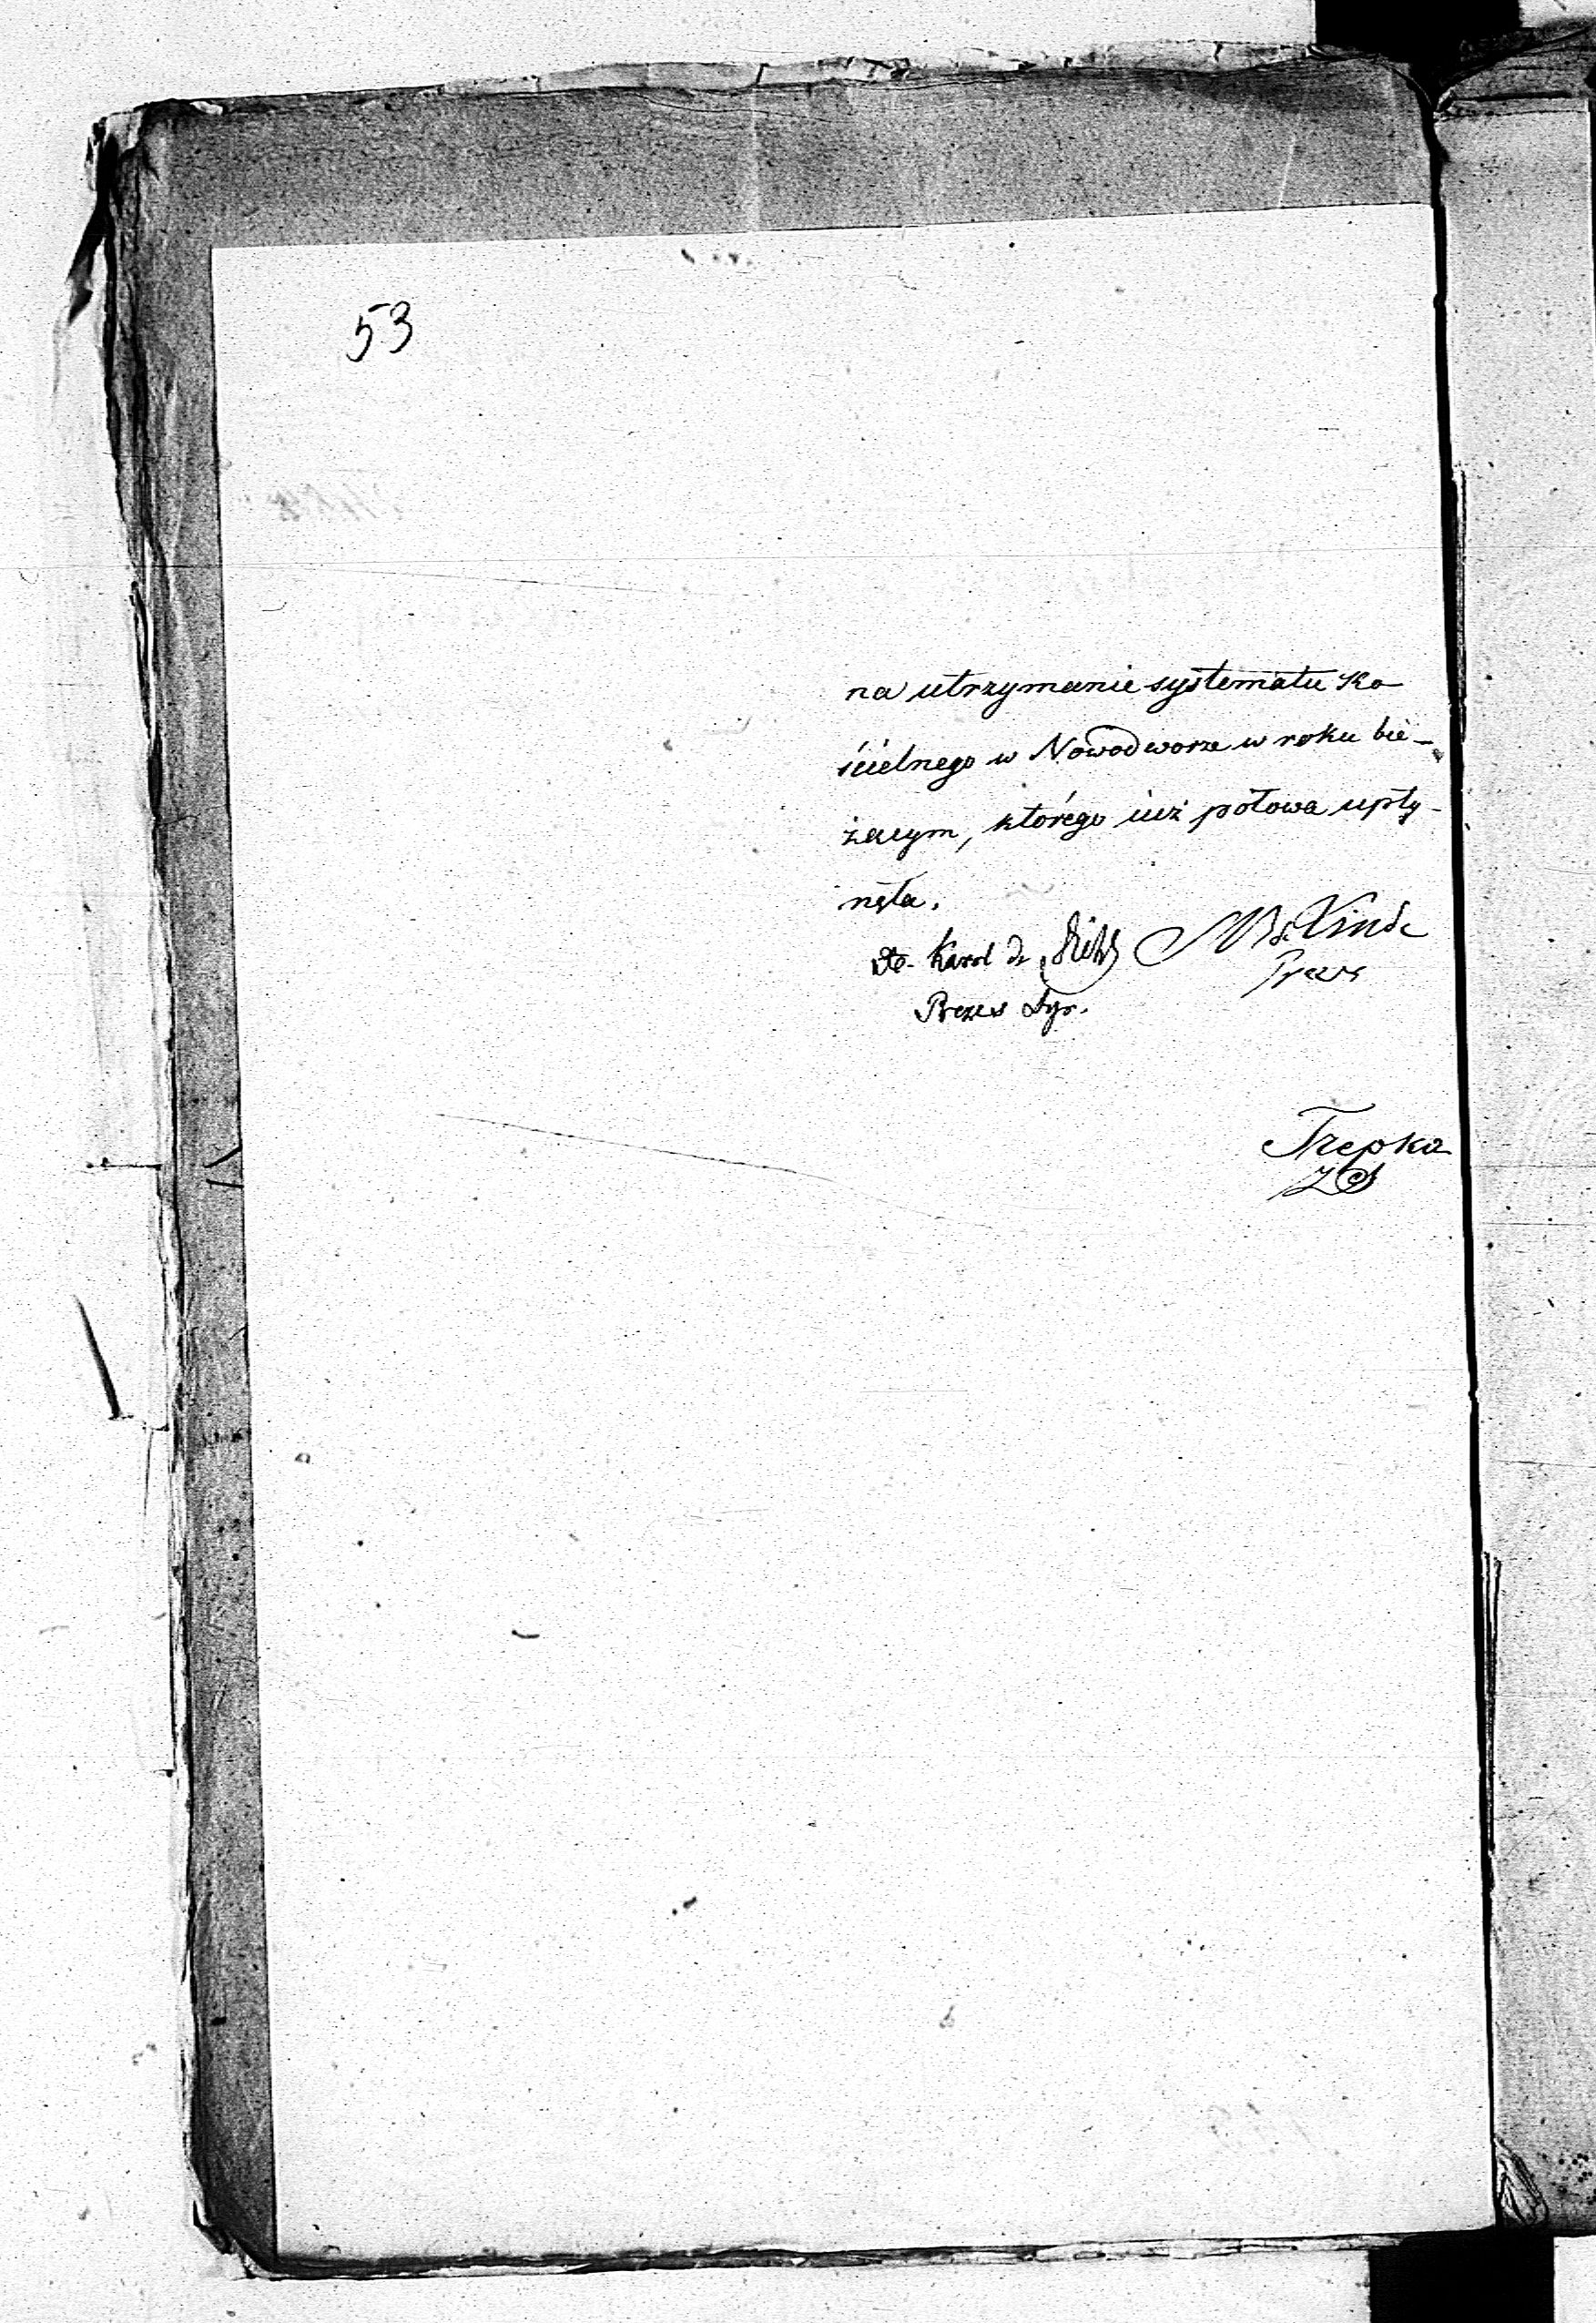 53
na utrzymanie systematu ko-
ścielnego w Nowodworze w roku bie-
żącym, którego iuż połowa upły-
nęła.
Karol
Prezes Syn.
Trepka